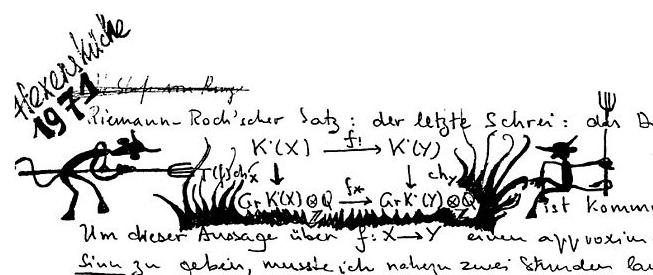 Hexenküche
1971
Riemann-Roch'scher Satz: der letzte Schrei: das
K·(X) f! K·(Y)
T(f)chx chy
Gr K(X)⊗Q f* Gr K·(Y)⊗Q
Z Z
ist kommu
Um dieser Aussage über f: X→Y einen approxim
Sinn zu geben, musste ich nahezu zwei Stunden la